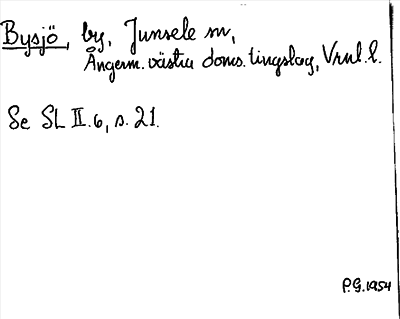 Bysjö, by, Junsele sn,
Ångerm. västra doms. tingslag, Vrnl. l.
Se SL II.6, s. 21.
P.G. 1954